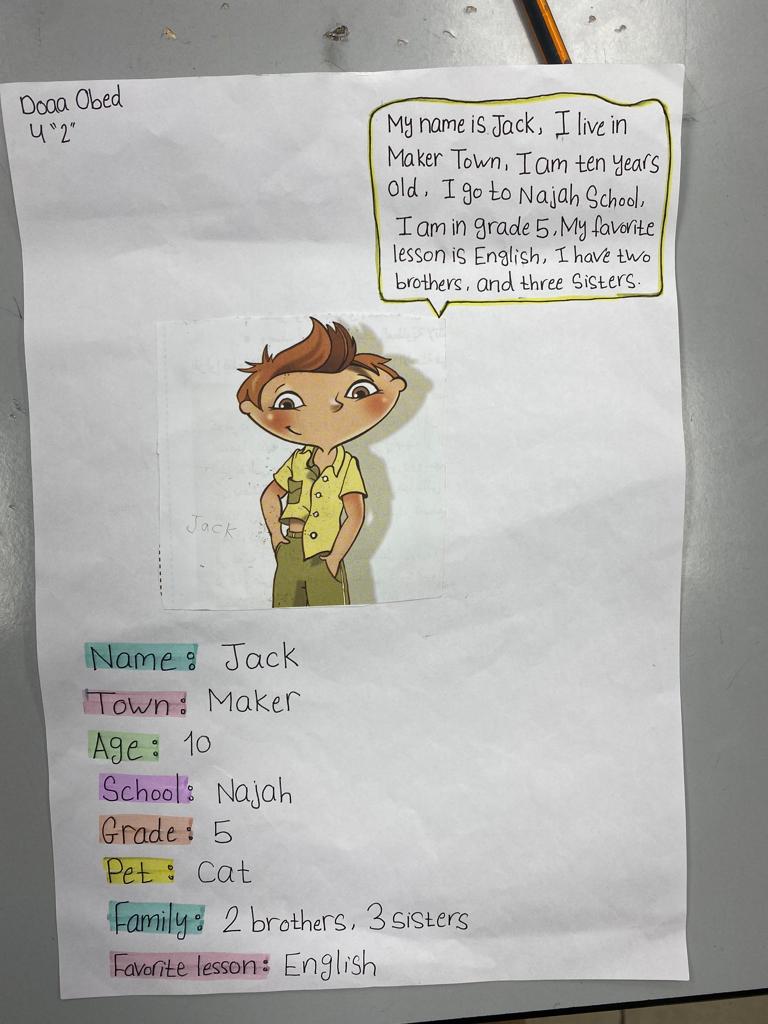 Doaa Obed
4 "2"
My name is Jack, I live in
Maker Town, I am ten years
old, I go to Najah School,
I am in grade 5, My favorite
lesson is English, I have two
brothers, and three sisters.
Jack
Name: Jack
Town: Maker
Age: 10
School: Najah
Grade: 5
Pet: Cat
Family: 2 brothers, 3 sisters
Favorite lesson: English